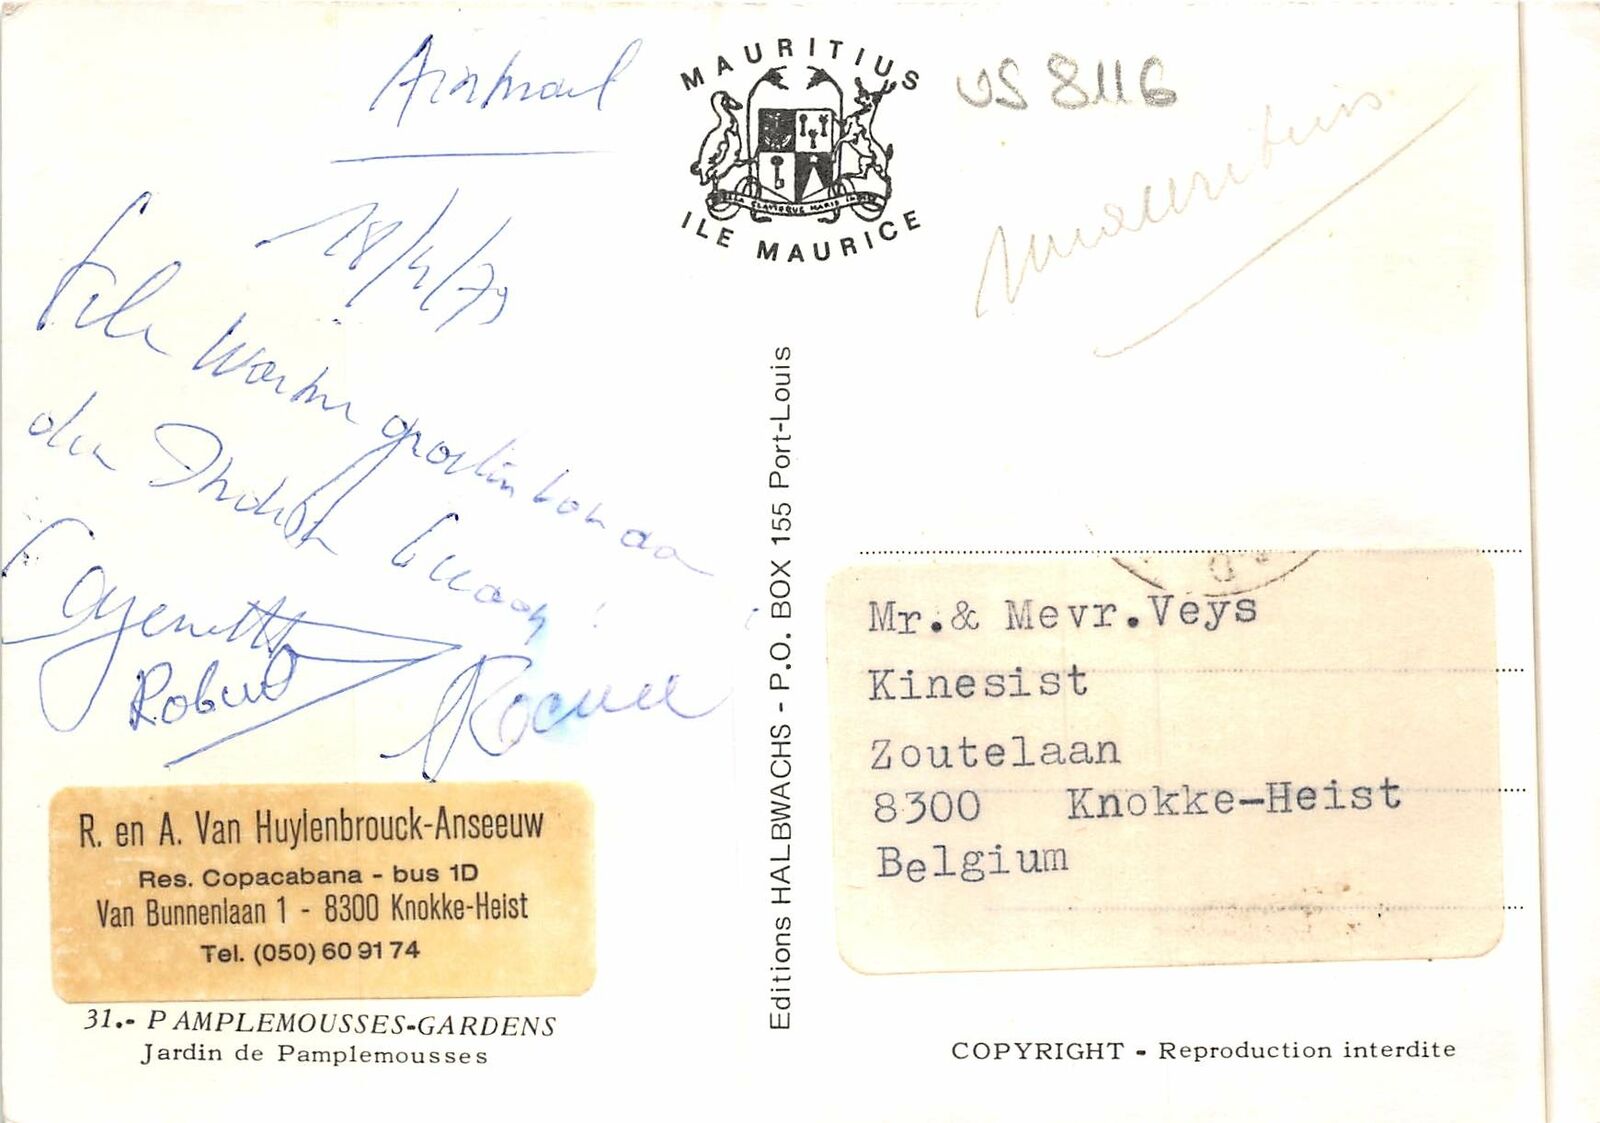 Airmail
18/4/79
Vele Warme groeten van aan
den Indish
Robert
R. en A. Van Huylenbrouck-Anseeuw
Res. Copacabana - bus 1D
Van Bunnenlaan 1 - 8300 Knokke-Heist
Tel. (050) 60 91 74
31.- PAMPLEMOUSSES-GARDENS
Jardin de Pamplemousses
MAURITIUS
ILE MAURICE
Editions HALBWACHS - P.O. BOX 155 Port-Louis
VS 8116
Mauritius
Mr.& Mevr.Veys
Kinesist
Zoutelaan
8300 Knokke-Heist
Belgium
COPYRIGHT - Reproduction interdite